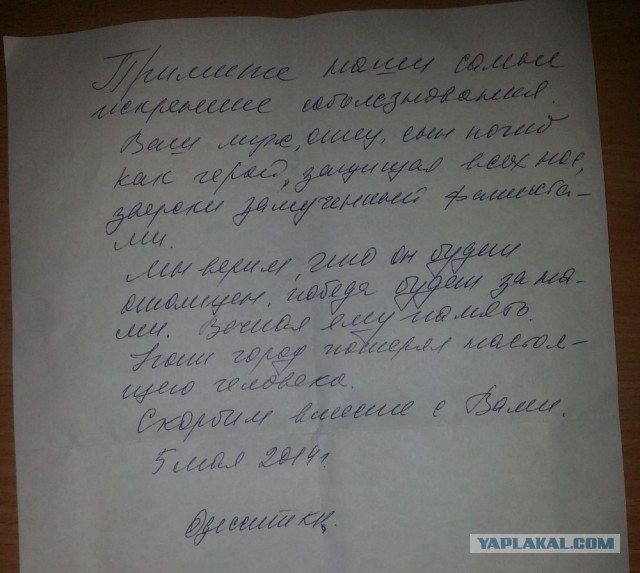 Примите наши самые
искренние соболезнования.
Ваш муж, отец, сын погиб
как герой, защищая всех нас,
зверски замученный фашиста-
ми.
Мы верим, что он будет
отомщен. победа будет за на-
ми. Вечная ему память.
Наш город потерял настоя-
щего человека.
Скорбим вместе с Вами.
5 мая 2014 г
YAPLAKAL.COM